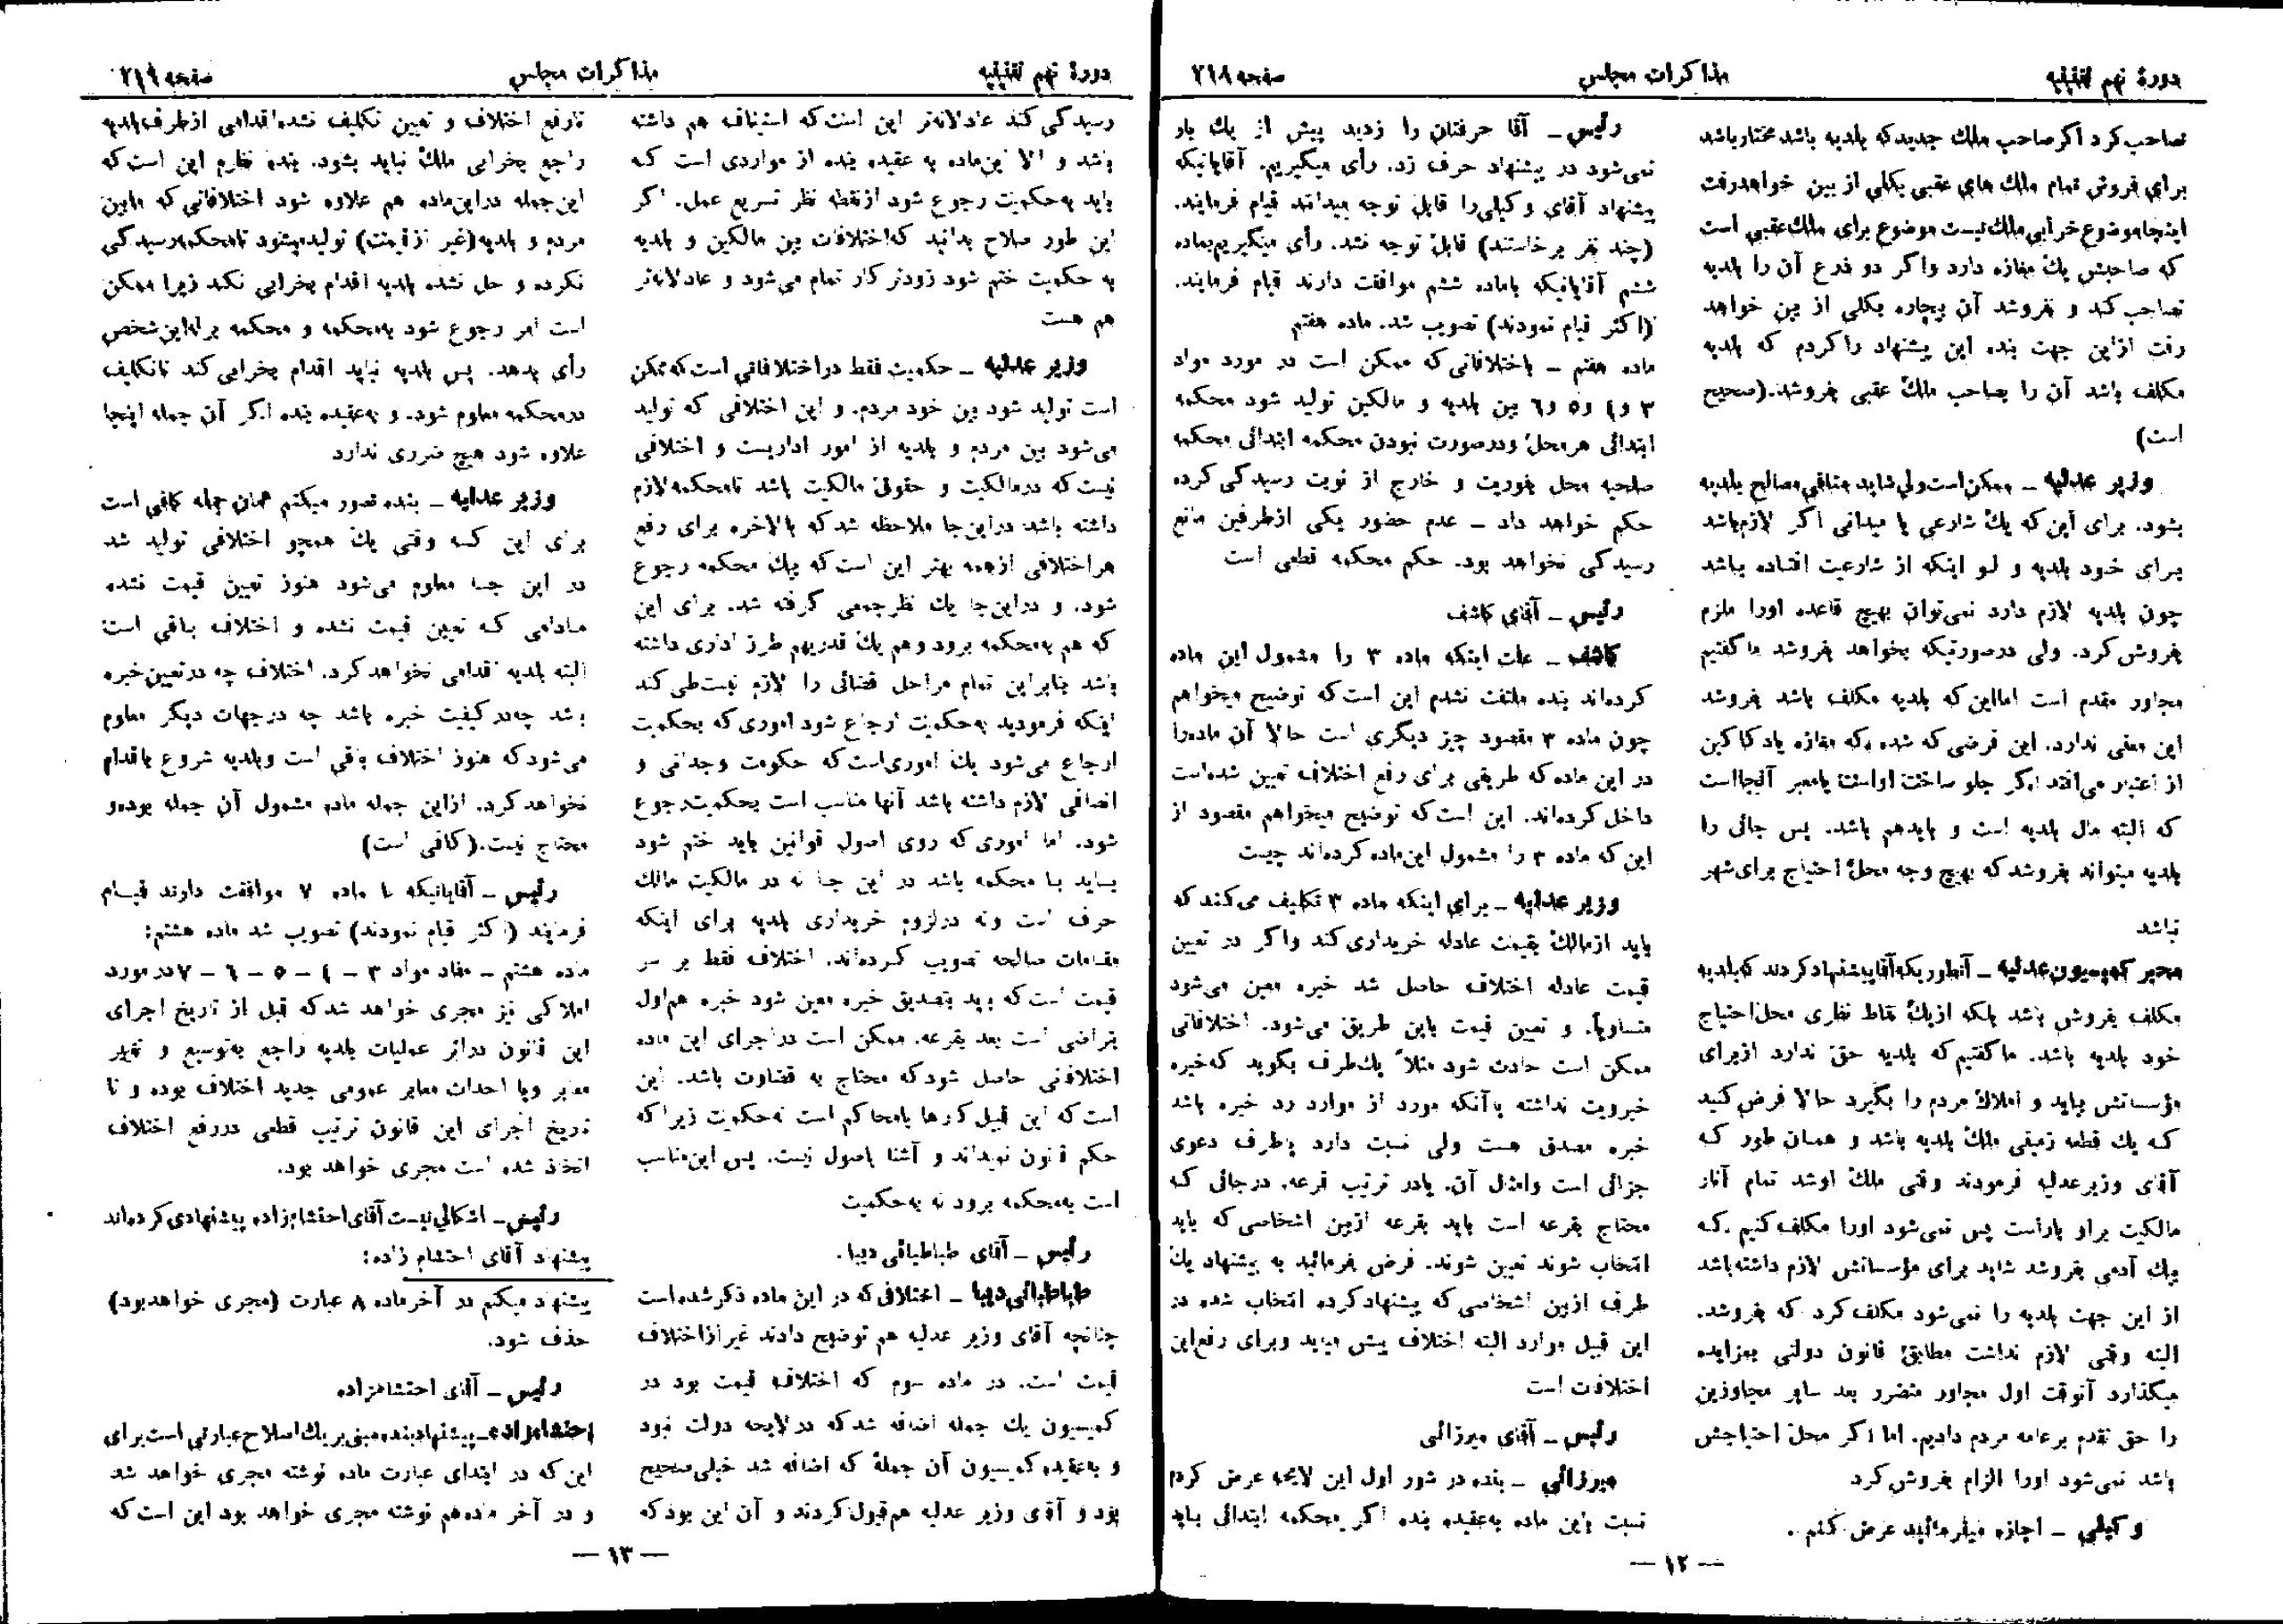 دورهٔ نهم تقنینیه
مذاکرات مجلس
صفحه ۲۱۸
تصاحب کرد اگر صاحب ملک جدید که بلدیه باشد مختار باشد
برای فروش تمام ملک های عقبی بکلی از بین خواهد رفت
اینجا موضوع خرابی ملک نیست موضوع برای ملک عقبی است
که صاحبش یك مغازه دارد واگر دو ذرع آن را بلدیه
تصاحب کند و بفروشد آن بیچاره بکلی از بین خواهد
رفت ازاین جهت بنده این پیشنهاد را کردم که بلدیه
مکلف باشد آن را بصاحب ملك عقبی بفروشد.(صحیح
است)
وزیر عدلیه ـ ممکن است ولی شاید منافی مصالح بلدیه
بشود. برای این که یك شارعی یا میدانی اگر لازم باشد
برای خود بلدیه و لو اینکه از شارعیت افتاده باشد
چون بلدیه لازم دارد نمی‌توان بهیچ قاعده اورا ملزم
بفروش کرد. ولی درصورتیکه بخواهد بفروشد ما گفتیم
مجاور مقدم است امااین که بلدیه مکلف باشد بفروشد
این معنی ندارد. این فرضی که شده که مغازه یادکاکین
از اعتبار می‌افتد اگر جلو ساخت اواست یامعبر آنجااست
که البته مال بلدیه است و بایدهم باشد. پس جائی را
بلدیه میتواند بفروشد که بهیچ وجه محل احتیاج برای شهر
نباشد
مخبر کمیسیون عدلیه ـ آنطوریکه آقا پیشنهاد کردند که بلدیه
مکلف بفروش باشد بلکه ازیك نقاط نظری محل احتیاج
خود بلدیه باشد. ما گفتیم که بلدیه حق ندارد ازبرای
مؤسساتش بیاید و املاك مردم را بگیرد حالا فرض کنید
که یك قطعه زمینی ملك بلدیه باشد و همان طور که
آقای وزیر عدلیه فرمودند وقتی ملك اوشد تمام آثار
مالکیت براو باراست پس نمی‌شود اورا مکلف کنیم که
یك آدمی بفروشد شاید برای مؤسساتش لازم داشته باشد
از این جهت بلدیه را نمی‌شود مکلف کرد که بفروشد.
البته وقتی لازم نداشت مطابق قانون دولتی بمزایده
میگذارد آنوقت اول مجاور متضرر بعد سایر مجاورین
را حق تقدم برعامه مردم دادیم. اما اگر محل احتیاجش
باشد نمی‌شود اورا الزام بفروش کرد
وکیلی ـ اجازه میفرمائید عرض کنم.
رئیس ـ آقا حرفتان را زدید بیش از یك بار
نمی‌شود در پیشنهاد حرف زد. رأی میگیریم. آقایانیکه
پیشنهاد آقای وکیلی را قابل توجه میدانند قیام فرمایند.
(چند نفر برخاستند) قابل توجه نشد. رأی میگیریم بماده
ششم آقایانیکه باماده ششم موافقت دارند قیام فرمایند.
(اکثر قیام نمودند) تصویب شد. ماده هفتم
ماده هفتم ـ باختلافاتی که ممکن است در مورد مواد
۳ و۴ و۵ و۶ بین بلدیه و مالکین تولید شود محکمه
ابتدائی هرمحل ودرصورت نبودن محکمه ابتدائی محکمه
صلحیه محل بفوریت و خارج از نوبت رسیدگی کرده
حکم خواهد داد ـ عدم حضور یکی ازطرفین مانع
رسیدگی نخواهد بود. حکم محکمه قطعی است
رئیس ـ آقای کاشف
کاشف ـ علت اینکه ماده ۳ را مشمول این ماده
کرده‌اند بنده ملتفت نشدم این است که توضیح میخواهم
چون ماده ۳ مقصود چیز دیگری است حالا آن ماده‌را
در این ماده که طریقی برای رفع اختلاف تعیین شده‌است
داخل کرده‌اند. این است که توضیح میخواهم مقصود از
این که ماده ۳ را مشمول این ماده کرده‌اند چیست
وزیر عدلیه ـ برای اینکه ماده ۳ تکلیف می‌کند که
باید ازمالك بقیمت عادله خریداری کند واگر در تعیین
قیمت عادله اختلاف حاصل شد خبره معین می‌شود
متساویاً. و تعیین قیمت باین طریق می‌شود. اختلافاتی
ممکن است حادث شود مثلاً یك‌طرف بگوید که خبره
خبرویت نداشته یاآنکه مورد از موارد رد خبره باشد
خبره مصدق هست ولی نسبت دارد باطرف دعوی
جزائی است وامثال آن. یادر ترتیب قرعه. درجائی که
محتاج بقرعه است باید بقرعه ازبین اشخاصی که باید
انتخاب شوند تعیین شوند. فرض بفرمائید به پیشنهاد یك
طرف ازبین اشخاصی که پیشنهاد کرده انتخاب شده در
این قبیل موارد البته اختلاف پیش میاید وبرای رفع این
اختلافات است
رئیس ـ آقای میرزائی
میرزائی ـ بنده در شور اول این لایحه عرض کردم
نسبت باین ماده به‌عقیده بنده اگر بمحکمه ابتدائی بیاید
ـ ۱۲ ـ
دورهٔ نهم تقنینیه
مذاکرات مجلس
صفحه ۲۱۹
رسیدگی کند عادلانه‌تر این است که استیناف هم داشته
باشد و الا این‌ماده به عقیده بنده از مواردی است که
باید به‌حکمیت رجوع شود ازنقطه نظر تسریع عمل. اگر
این طور صلاح بدانید که‌اختلافات بین مالکین و بلدیه
به حکمیت ختم شود زودتر کار تمام می‌شود و عادلانه‌تر
هم هست
وزیر عدلیه ـ حکمیت فقط در اختلافاتی است که ممکن
است تولید شود بین خود مردم. و این اختلافی که تولید
می‌شود بین مردم و بلدیه از امور اداریست و اختلافی
نیست که درمالکیت و حقوق مالکیت باشد تامحکمه لازم
داشته باشد دراین‌جا ملاحظه شد که بالاخره برای رفع
هراختلافی ازهمه بهتر این است که بیك محکمه رجوع
شود. و دراین‌جا یك نظرجمعی گرفته شد. برای این
که هم به‌محکمه برود وهم یك قدریهم طرز اداری داشته
باشد بنابراین تمام مراحل قضائی را لازم نیست‌طی کند
اینکه فرمودید به‌حکمیت ارجاع شود اموری که بحکمیت
ارجاع می‌شود یك اموری‌است که حکومت وجدانی و
انصافی لازم داشته باشد آنها مناسب است بحکمیت‌رجوع
شود. اما اموری که روی اصول قوانین باید ختم شود
بباید با محکمه باشد در این جا نه در مالکیت مالك
حرف است ونه درلزوم خریداری بلدیه برای اینکه
مقامات صالحه تصویب کرده‌اند. اختلاف فقط بر سر
قیمت است که باید بتصدیق خبره معین شود خبره هم‌اول
بتراضی است بعد بقرعه. ممکن است دراجرای این ماده
اختلافاتی حاصل شود که محتاج به قضاوت باشد. این
است که این قبیل کارها بامحاکم است نه‌حکمیت زیراکه
حکم قانون نمیداند و آشنا باصول نیست. پس این‌مناسب
است به‌محکمه برود نه به‌حکمیت
رئیس ـ آقای طباطبائی دیبا.
طباطبائی دیبا ـ اختلافی که در این ماده ذکر شده‌است
چنانچه آقای وزیر عدلیه هم توضیح دادند غیرازاختلاف
قیمت است. در ماده سوم که اختلاف قیمت بود در
کمیسیون یك جمله اضافه شد که در لایحه دولت نبود
و به‌عقیده کمیسیون آن جملهٔ که اضافه شد خیلی صحیح
بود و آقای وزیر عدلیه هم قبول کردند و آن این بود که
تارفع اختلاف و تعیین تکلیف نشده اقدامی ازطرف بلدیه
راجع بخرابی ملك نباید بشود. بنده نظرم این است که
این‌جمله دراین‌ماده هم علاوه شود اختلافاتی که مابین
مردم و بلدیه(غیر ازقیمت) تولیدمیشود تامحکمه‌رسیدگی
نکرده و حل نشده بلدیه اقدام بخرابی نکند زیرا ممکن
است امر رجوع شود به‌محکمه و محکمه براه‌این شخص
رأی بدهد. پس بلدیه نباید اقدام بخرابی کند تاتکلیف
درمحکمه معلوم شود. و به‌عقیده بنده اگر آن جمله اینجا
علاوه شود هیچ ضرری ندارد
وزیر عدلیه ـ بنده تصور میکنم همان جمله کافی است
برای این که وقتی یك همچو اختلافی تولید شد
در این جا معلوم می‌شود هنوز تعیین قیمت نشده
مادامی که تعیین قیمت نشده و اختلاف باقی است
البته بلدیه اقدامی نخواهد کرد. اختلاف چه درتعیین خبره
باشد چه‌در کیفیت خبره باشد چه درجهات دیگر معلوم
می‌شود که هنوز اختلاف باقی است وبلدیه شروع باقدام
نخواهد کرد. ازاین جمله ماده مشمول آن جمله بوده‌و
محتاج نیست.(کافی است)
رئیس ـ آقایانیکه با ماده ۷ موافقت دارند قیام
فرمایند (اکثر قیام نمودند) تصویب شد ماده هشتم:
ماده هشتم ـ مفاد مواد ۳ ـ ۴ ـ ۵ ـ ۶ ـ ۷ درمورد
املاکی نیز مجری خواهد شد که قبل از تاریخ اجرای
این قانون دراثر عملیات بلدیه راجع به‌توسیع و تغییر
معابر ویا احداث معابر عمومی جدید اختلاف بوده و تا
تاریخ اجرای این قانون ترتیب قطعی دررفع اختلاف
اتخاذ شده است مجری خواهد بود.
رئیس ـ اشکالی نیست آقای احتشام‌زاده پیشنهادی کرده‌اند
پیشنهاد آقای احتشام زاده:
پیشنهاد میکنم در آخر ماده ۸ عبارت (مجری خواهدبود)
حذف شود.
رئیس ـ آقای احتشامزاده
احتشامزاده ـ پیشنهاد بنده مبنی بر یك اصلاح عبارتی است برای
این که در ابتدای عبارت ماده نوشته مجری خواهد شد
و در آخر ماده‌هم نوشته مجری خواهد بود این است که
ـ ۱۳ ـ